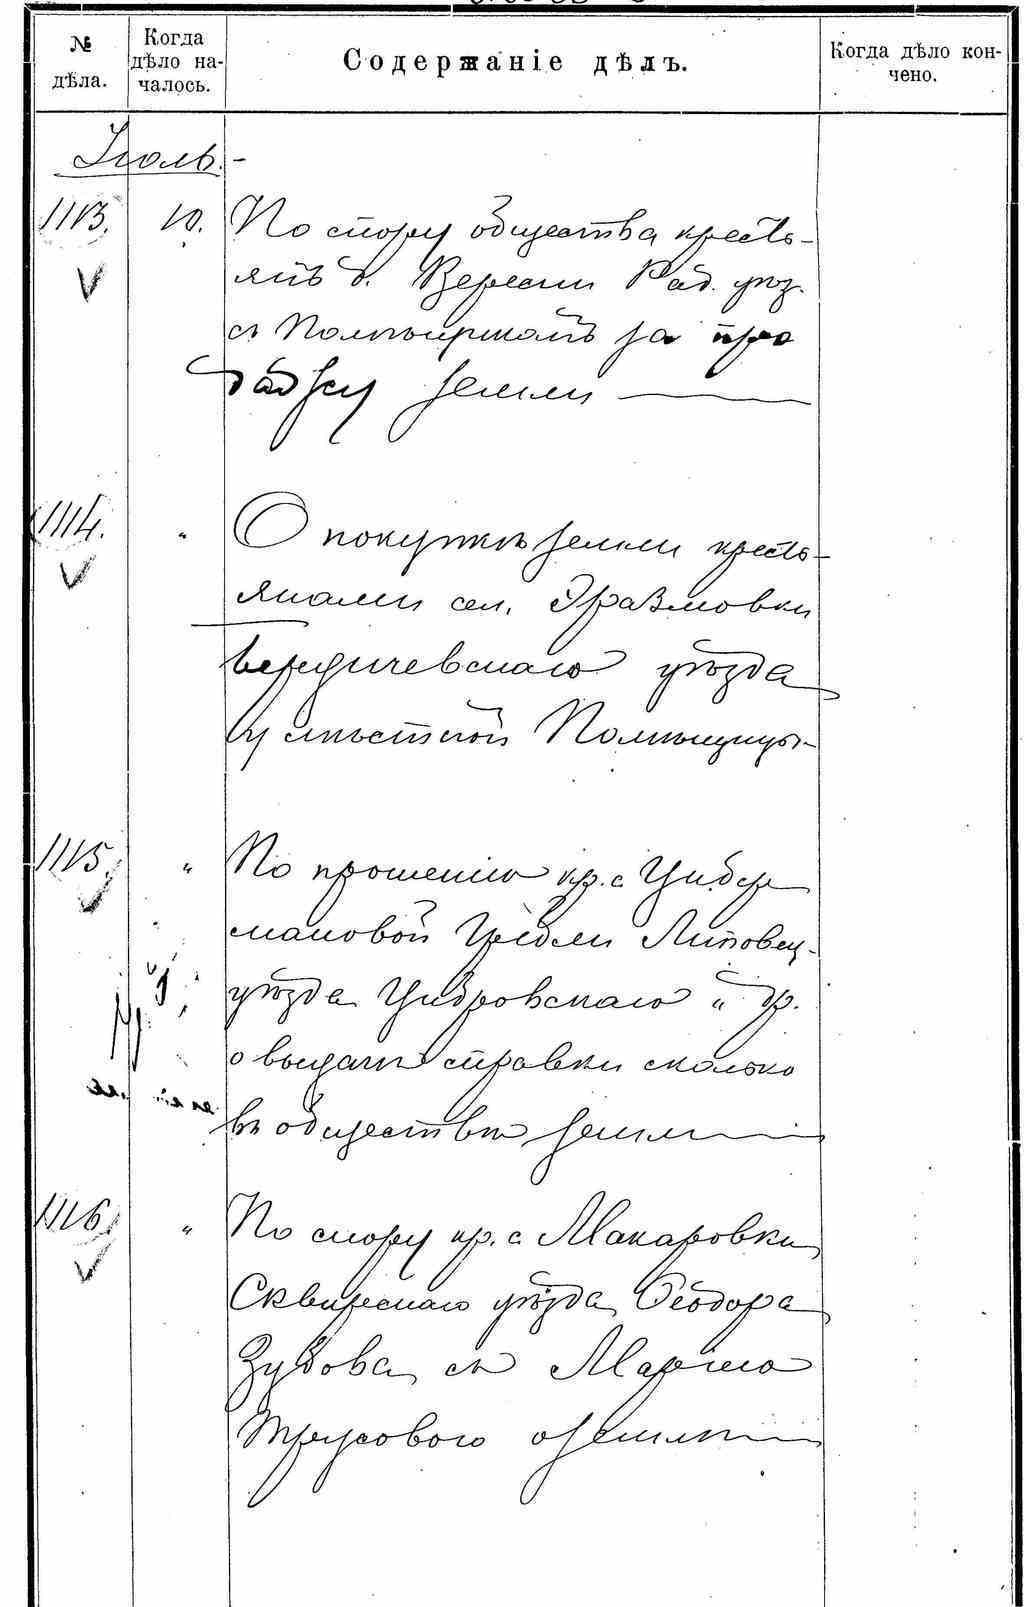 № дѣла.
Когда дѣло на-
чалось.
Содержаніе дѣлъ.
Когда дѣло кон-
чено.
Іюль.-
1113. 10. По спору общества кресть-
янъ д. Вересни Рад. уѣз.
съ Помѣщикомъ за про
дажу земли
1114. " О покупкѣ земли кресть-
янами сел. Эразмовки
Бердичевскаго уѣзда
у мѣстной Помѣщицы-
1115. " По прошенію кр. с.
Липовец.
уѣзда Цибровскаго и др.
о выдачѣ справки сколько
въ обществѣ земли
1116. " По спору кр. с. Макаровки
Сквирскаго уѣзда Ѳеодора
Зубова съ Маріею
Трусового о землѣ